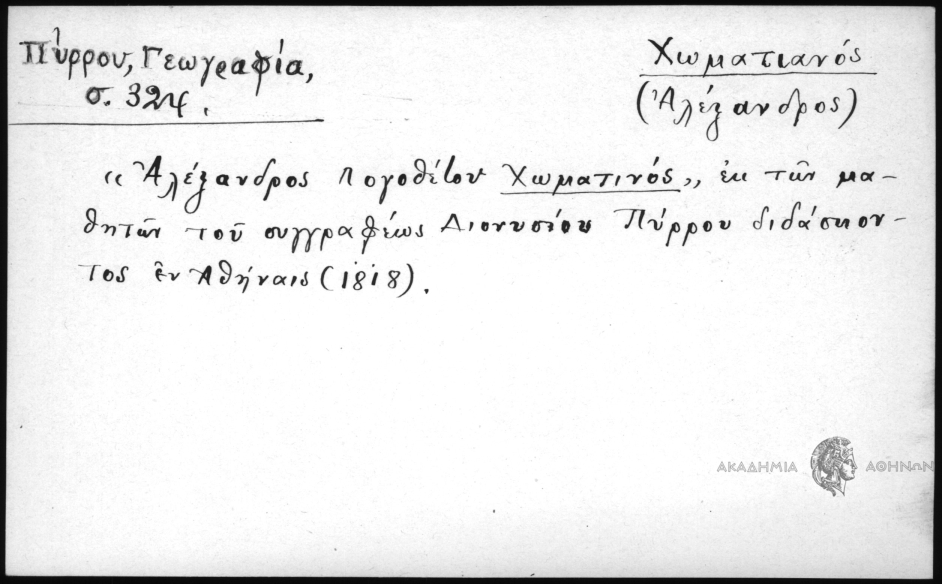 Πύρρου, Γεωγραφία,
σ. 324.
Χωματιανός
(Ἀλέξανδρος)
"Ἀλέξανδρος Λογοθέτου Χωματινός,, ἐκ τῶν μα-
θητῶν τοῦ συγγραφέως Διονυσίου Πύρρου διδάσκον-
τος ἐν Ἀθήναις (1818).
ΑΚΑΔΗΜΙΑ ΑΘΗΝΩΝ